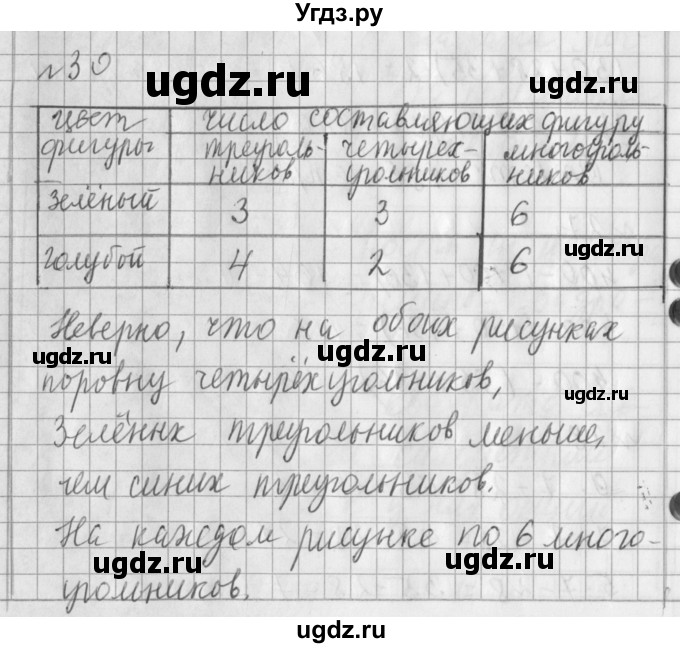 Угдз.ру
№30
ugdz.ru
цвет число составляющих фигуру
фигуры треуголь- четырех- многоуголь-
ников угольников ников
Зелёный 3 3 6
ugdz.ru
голубой 4 2 6
Неверно, что на обоих рисунках
ugdz.ru ugdz.ru
поровну четырёхугольников,
ugdz.ru
Зелёных треугольников меньше,
ugdz.ru ugdz.ru
чем синих треугольников.
На каждом рисунке по 6 много-
ugdz.ru ugdz.ru
угольников.
ugdz.ru